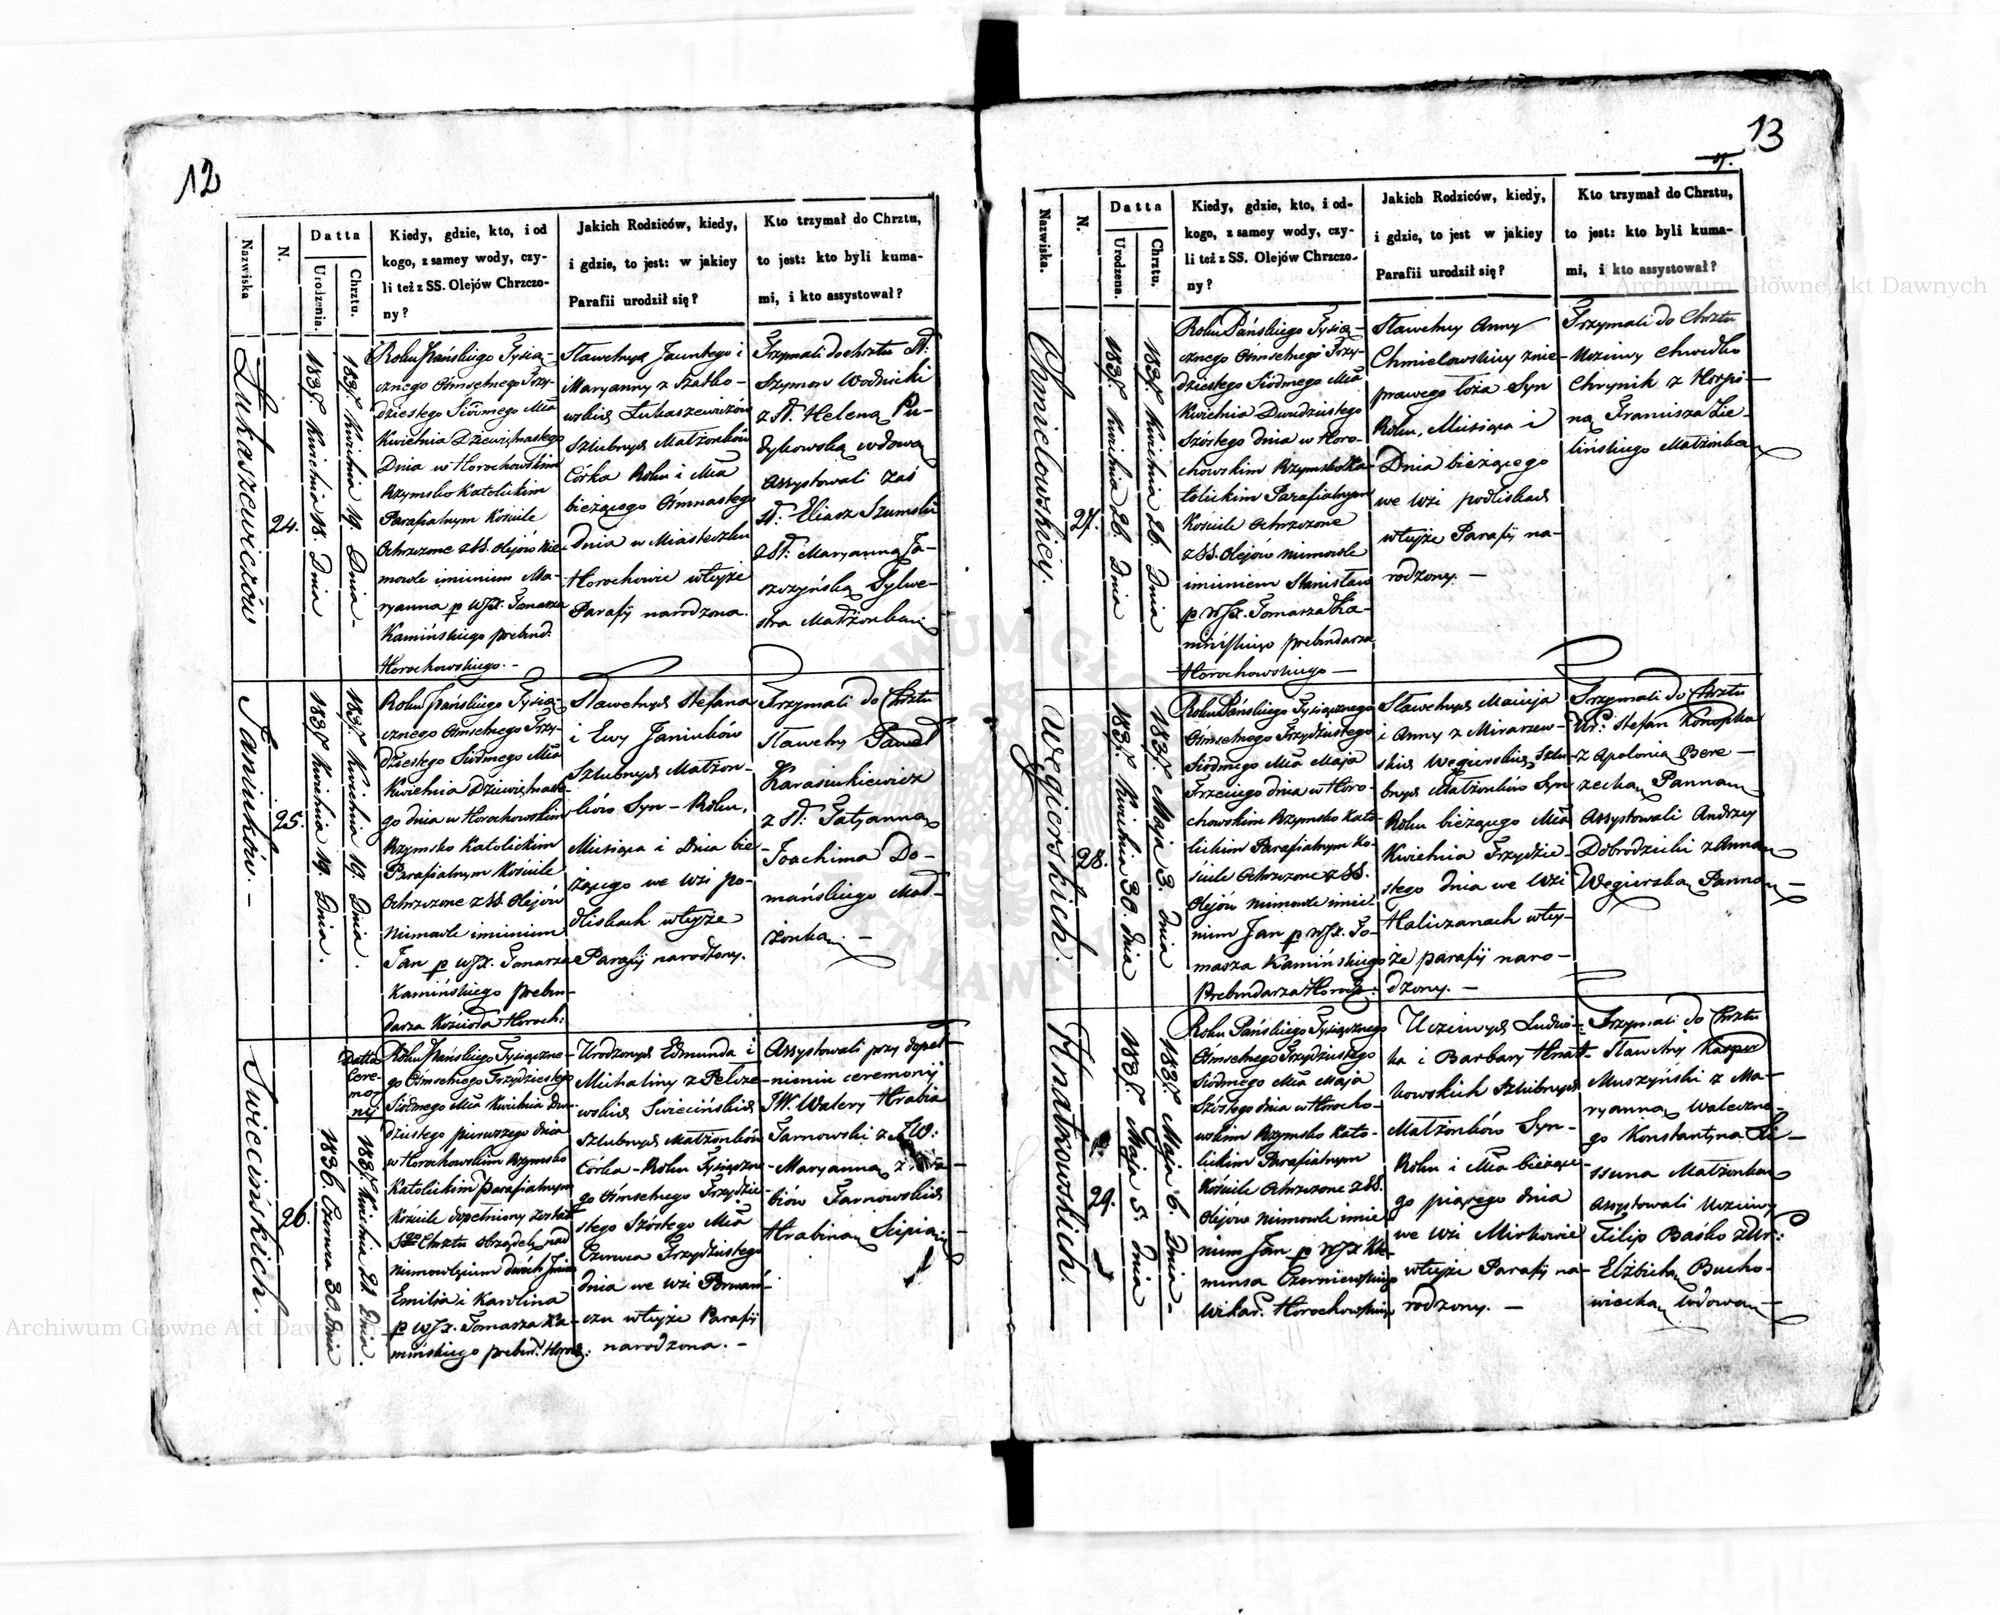 12
Nazwiska
N.
Datta
Urodzenia.
Chrztu.
Kiedy, gdzie, kto, i od
kogo, z samey wody, czy-
li też z SS. Olejów Chrzczo-
ny?
Jakich Rodziców, kiedy,
i gdzie, to jest: w jakiey
Parafii urodził się?
Kto trzymał do Chrztu,
to jest: kto byli kuma-
mi, i kto assystował?
Łukaszewiczów
24.
1837. Kwietnia 18. Dnia
1837. Kwietnia 19. Dnia -
Roku Pańskiego Tysią-
cznego Ośmsetnego Trzy-
dziestego Siódmego Mca
Kwietnia Dziewiętnastego
Dnia w Horochowskim
Rzymsko Katolickim
Parafialnym Kościele
Ochrzczone z SS. Olejów Nie-
mowle imieniem Ma-
ryanna p WJX. Tomasza
Kamińskiego prebend.
Horochowskiego. -
Sławetnych i
Maryanny z
Łukaszewiczów
Szlubnych Małżonków
Córka Roku i Mca
bieżącego Ośmnastego
Dnia w Miasteczku
Horochowie wteyże
Parafij narodzona.
Trzymali do chrztu
Szymon Wodnicki
z Helena Pu-
dykowska wdowa
Assystowali Zaś
Eliasz Szumski
Maryanna Ja-
szczyńska Sylwe-
stra Małżonka
Janiuków. -
25.
1837 Kwietnia 19. Dnia.
1837. Kwietnia 19. Dnia.
Roku Pańskiego Tysią-
cznego Ośmsetnego Trzy-
dziestego Siódmego Mca
Kwietnia Dziewiętnaste-
go dnia w Horochowskim
Rzymsko Katolickim
Parafialnym Kościele
Ochrzczone z SS Olejów
Niemowle imieniem
Jan p WJX. Tomasza
Kamińskiego preben-
darza Kościoła Horoch:
Sławetnych Stefana
i Ewy Janiuków
Szlubnych Małżon-
ków Syn - Roku,
Miesiąca i Dnia bie-
żącego we Wsi po-
dliskach wteyże
Parafij narodzony.
Trzymali do Chrztu
Sławetny Paweł
Karasiukiewicz
z Tatyanna
Joachima Do-
mańskiego Mał-
żonka -
Swiecińskich.
26.
Datta
Cere-
mo-
nij
1836. Czerwca 30. dnia
1837. Kwietnia 21 Dnia.
Roku Pańskiego Tysiączne-
go Ośmsetnego Trzydziestego
Siódmego Mca Kwietnia Dwu-
dziestego pierwszego dnia
w Horochowskim Rzymsko
Katolickim parafialnym
Kościele dopełniony został
Sgo Chrztu obrządek nad
Niemowlęciem dwóch Imion
Emilia i Karolina
p WJX. Tomasza Ka-
mińskiego prebend. Horoch:
Urodzonych Edmunda i
Michaliny z Pelcze-
wskich Swiecińskich
Szlubnych Małżonków
Córka - Roku Tysiączne-
go Ośmsetnego Trzydzie-
stego Szóstego Mca
Czerwca Trzydziestego
dnia we Wsi
wteyże Parafij
narodzona. -
Assystowali przy dopeł-
nieniu ceremonij
JW. Walery Hrabia
Tarnowski z JW:
Maryanna z
biów Tarnowskich
Hrabina Scipia
13
Nazwiska.
N.
Datta
Urodzena.
Chrztu.
Kiedy, gdzie, kto, i od-
kogo, z samey wody, czy-
li też z SS. Olejów Chrzczo-
ny?
Jakich Rodziców, kiedy,
i gdzie, to jest w jakiey
Parafii urodził się?
Kto trzymał do Chrztu,
to jest: kto byli kuma-
mi, i kto assystował?
Chmielowskiey.
27.
1837. Kwietnia 26. Dnia
1837. Kwietnia 26. Dnia
Roku Pańskiego Tysią-
cznego Ośmsetnego Trzy-
dziestego Siódmego Mca
Kwietnia Dwudziestego
Szóstego dnia w Horo-
chowskim Rzymsko Ka-
tolickim Parafialnym
Kościele Ochrzczone
z SS. Olejów niemowle
imieniem Stanisław
p WJX. Tomasza Ka-
mińskiego prebendarza
Horochowskiego -
Sławetney Anny
Chmielowskiey z nie-
prawego łoża Syn
Roku, Miesiąca i
Dnia bieżącego
we Wsi podliskach
wteyże Parafij na-
rodzony. -
Trzymali do Chrztu
Uczciwy Chwedko
Chrynik z Horpi-
na Franciszka Zie-
lińskiego Małżonka
Węgierskich.
28.
1837. Kwietnia 30. dnia
1837. Maja 3. dnia
Roku Pańskiego Tysiącznego
Ośmsetnego Trzydziestego
Siódmego Mca Maja
Trzeciego dnia w Horo-
chowskim Rzymsko Kato-
lickim Parafialnym Ko-
ściele Ochrzczone z SS.
Olejów Niemowle imie-
niem Jan p WJX. To-
masza Kamińskiego
Prebendarza Horoch:
Sławetnych Macieja
i Anny z
Węgierskich Szlu-
bnych Małżonków Syn
Roku bieżącego Mca
Kwietnia Trzydzie-
stego dnia we Wsi
Haliczanach wtey-
że parafij naro-
dzony. -
Trzymali do Chrztu
Ur: Stefan Konopka
z Apolonia Bere-
zecka Panna
Assystowali Andrzey
Dobrodzicki z Anna
Węgierska Panna -
Hnatkowskich.
29.
1837. Maja 5. dnia
1837. Maja 6. Dnia -
Roku Pańskiego Tysiącznego
Ośmsetnego Trzydziestego
Siódmego Mca Maja
Szóstego dnia w Horocho-
wskim Rzymsko Kato-
lickim Parafialnym
Kościele Ochrzczone z SS.
Olejów Niemowle imie-
niem Jan p WJX Kle-
mensa Czerniewskiego
Wikar. Horochowskiego
Uczciwych Ludwi-
ka i Barbary Hnat-
kowskich Szlubnych
Małżonków Syn -
Roku i Mca bieżące-
go piątego dnia
we Wsi Mirkowie
wteyże Parafij na-
rodzony. -
Trzymali do Chrztu
Sławetny Kasper
Muszyński z Ma-
ryanna Waleczne-
go Konstantyna Li-
ssena Małżonka
Assystowali Uczciwy
Filip Baśko z Ur:
Elżbieta Bucho-
wiecka Wdowa -
Archiwum Główne Akt Dawnych
Archiwum Główne Akt Dawnych